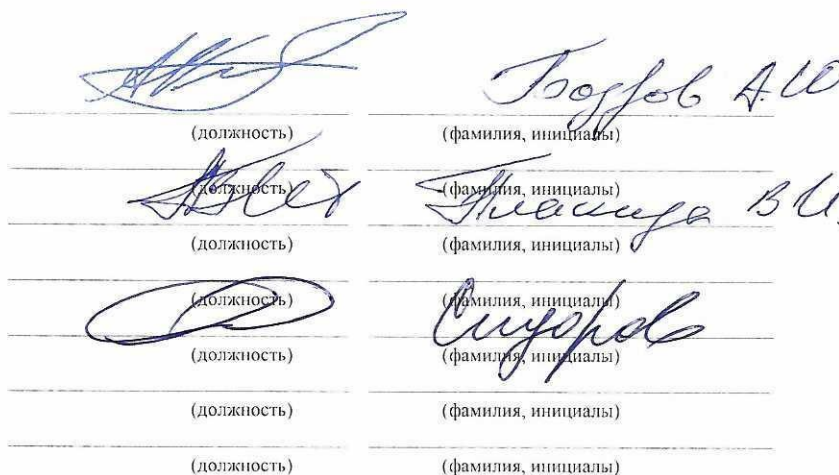 А.Ю
(должность) (фамилия, инициалы)
(должность) (фамилия, инициалы)
Плакида В И.
(должность) (фамилия, инициалы)
(должность) (фамилия, инициалы)
Сидоров
(должность) (фамилия, инициалы)
(должность) (фамилия, инициалы)
(должность) (фамилия, инициалы)